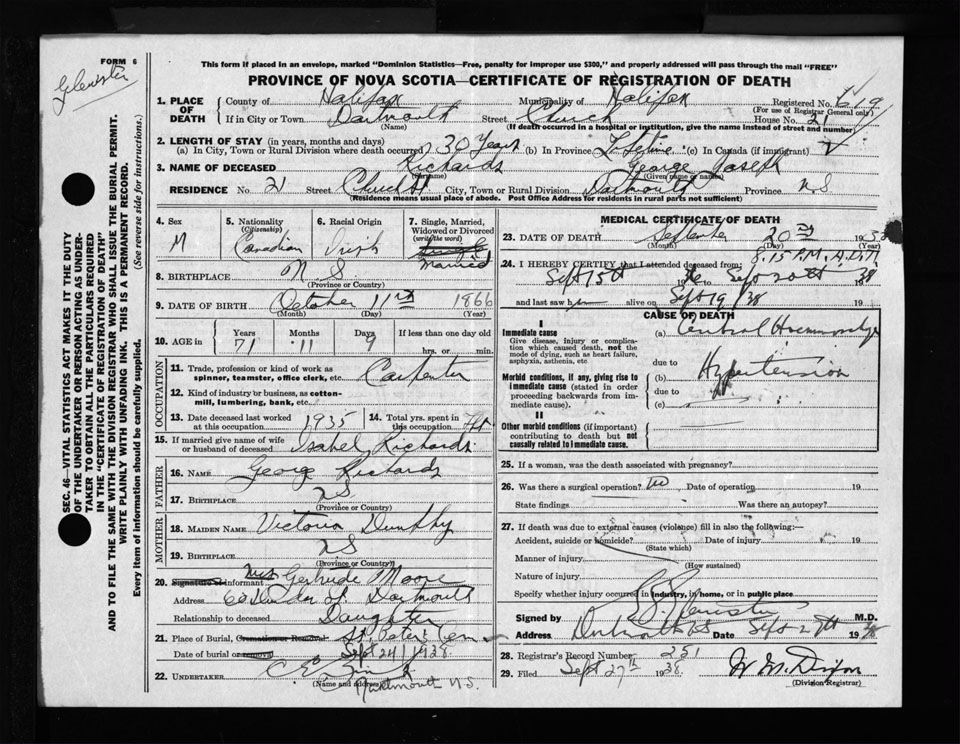 FORM 6
Glenister
This form if placed in an envelope, marked "Dominion Statistics—Free, penalty for improper use $300," and properly addressed will pass through the mail "FREE"
PROVINCE OF NOVA SCOTIA—CERTIFICATE OF REGISTRATION OF DEATH
SEC. 46—VITAL STATISTICS ACT MAKES IT THE DUTY
OF THE UNDERTAKER OR PERSON ACTING AS UNDER-
TAKER TO OBTAIN ALL THE PARTICULARS REQUIRED
IN THE "CERTIFICATE OF REGISTRATION OF DEATH"
AND TO FILE THE SAME WITH THE DIVISION REGISTRAR WHO SHALL ISSUE THE BURIAL PERMIT.
WRITE PLAINLY WITH UNFADING INK. THIS IS A PERMANENT RECORD.
Every item of information should be carefully supplied. (See reverse side for instructions.)
1. PLACE OF DEATH County of Halifax Municipality of Halifax Registered No. 619
(For use of Registrar General only)
If in City or Town Dartmouth Street Church House No. 21
(Name) (If death occurred in a hospital or institution, give the name instead of street and number)
2. LENGTH OF STAY (in years, months and days)
(a) In City, Town or Rural Division where death occurred 30 Years (b) In Province Lifetime (c) In Canada (if immigrant)
3. NAME OF DECEASED Richards George Joseph
(Surname) (Given name or names)
RESIDENCE No. 21 Street Church St City, Town or Rural Division Dartmouth Province N S
(Residence means usual place of abode. Post Office Address for residents in rural parts not sufficient)
4. Sex M
5. Nationality (Citizenship) Canadian
6. Racial Origin Irish
7. Single, Married, Widowed or Divorced (write the word) Single Married
8. BIRTHPLACE N S
(Province or Country)
9. DATE OF BIRTH October 11 1866
(Month) (Day) (Year)
10. AGE in Years 71 Months 11 Days 9 If less than one day old hrs. or min.
OCCUPATION
11. Trade, profession or kind of work as spinner, teamster, office clerk, etc. Carpenter
12. Kind of industry or business, as cotton-mill, lumbering, bank, etc.
13. Date deceased last worked at this occupation 1935
14. Total yrs. spent in this occupation
15. If married give name of wife or husband of deceased Isabel Richards
FATHER
16. NAME George Richards
17. BIRTHPLACE N S
(Province or Country)
MOTHER
18. MAIDEN NAME Victoria Dunphy
19. BIRTHPLACE N S
(Province or Country)
20. Signature of informant Mrs Gertrude Moore
Address Dartmouth
Relationship to deceased Daughter
21. Place of Burial, Cremation or Removal St. Peters Cem
Date of burial or removal Sept 24 1938
22. UNDERTAKER
(Name and address) Dartmouth N.S.
MEDICAL CERTIFICATE OF DEATH
23. DATE OF DEATH September 20 193
(Month) (Day) (Year)
8.15 P.M.
24. I HEREBY CERTIFY that I attended deceased from:
Sept 15th to Sept 20th 38
and last saw him alive on Sept 19 /38
CAUSE OF DEATH
I
Immediate cause
Give disease, injury or complication which caused death, not the mode of dying, such as heart failure, asphyxia, asthenia, etc
(a) Cerebral Haemorrhage
due to
Morbid conditions, if any, giving rise to immediate cause (stated in order proceeding backwards from immediate cause).
(b) Hypertension
due to
(c)
II
Other morbid conditions (if important) contributing to death but not causally related to immediate cause.
25. If a woman, was the death associated with pregnancy?
26. Was there a surgical operation? no Date of operation 19
State findings Was there an autopsy?
27. If death was due to external causes (violence) fill in also the following:—
Accident, suicide or homicide? Date of injury 19
(State which)
Manner of injury
(How sustained)
Nature of injury
Specify whether injury occurred in industry, in home, or in public place
Signed by Glenister M.D.
Address Dartmouth NS Date Sept 27th 19
28. Registrar's Record Number 251
29. Filed Sept 27th 1938
(Division Registrar)